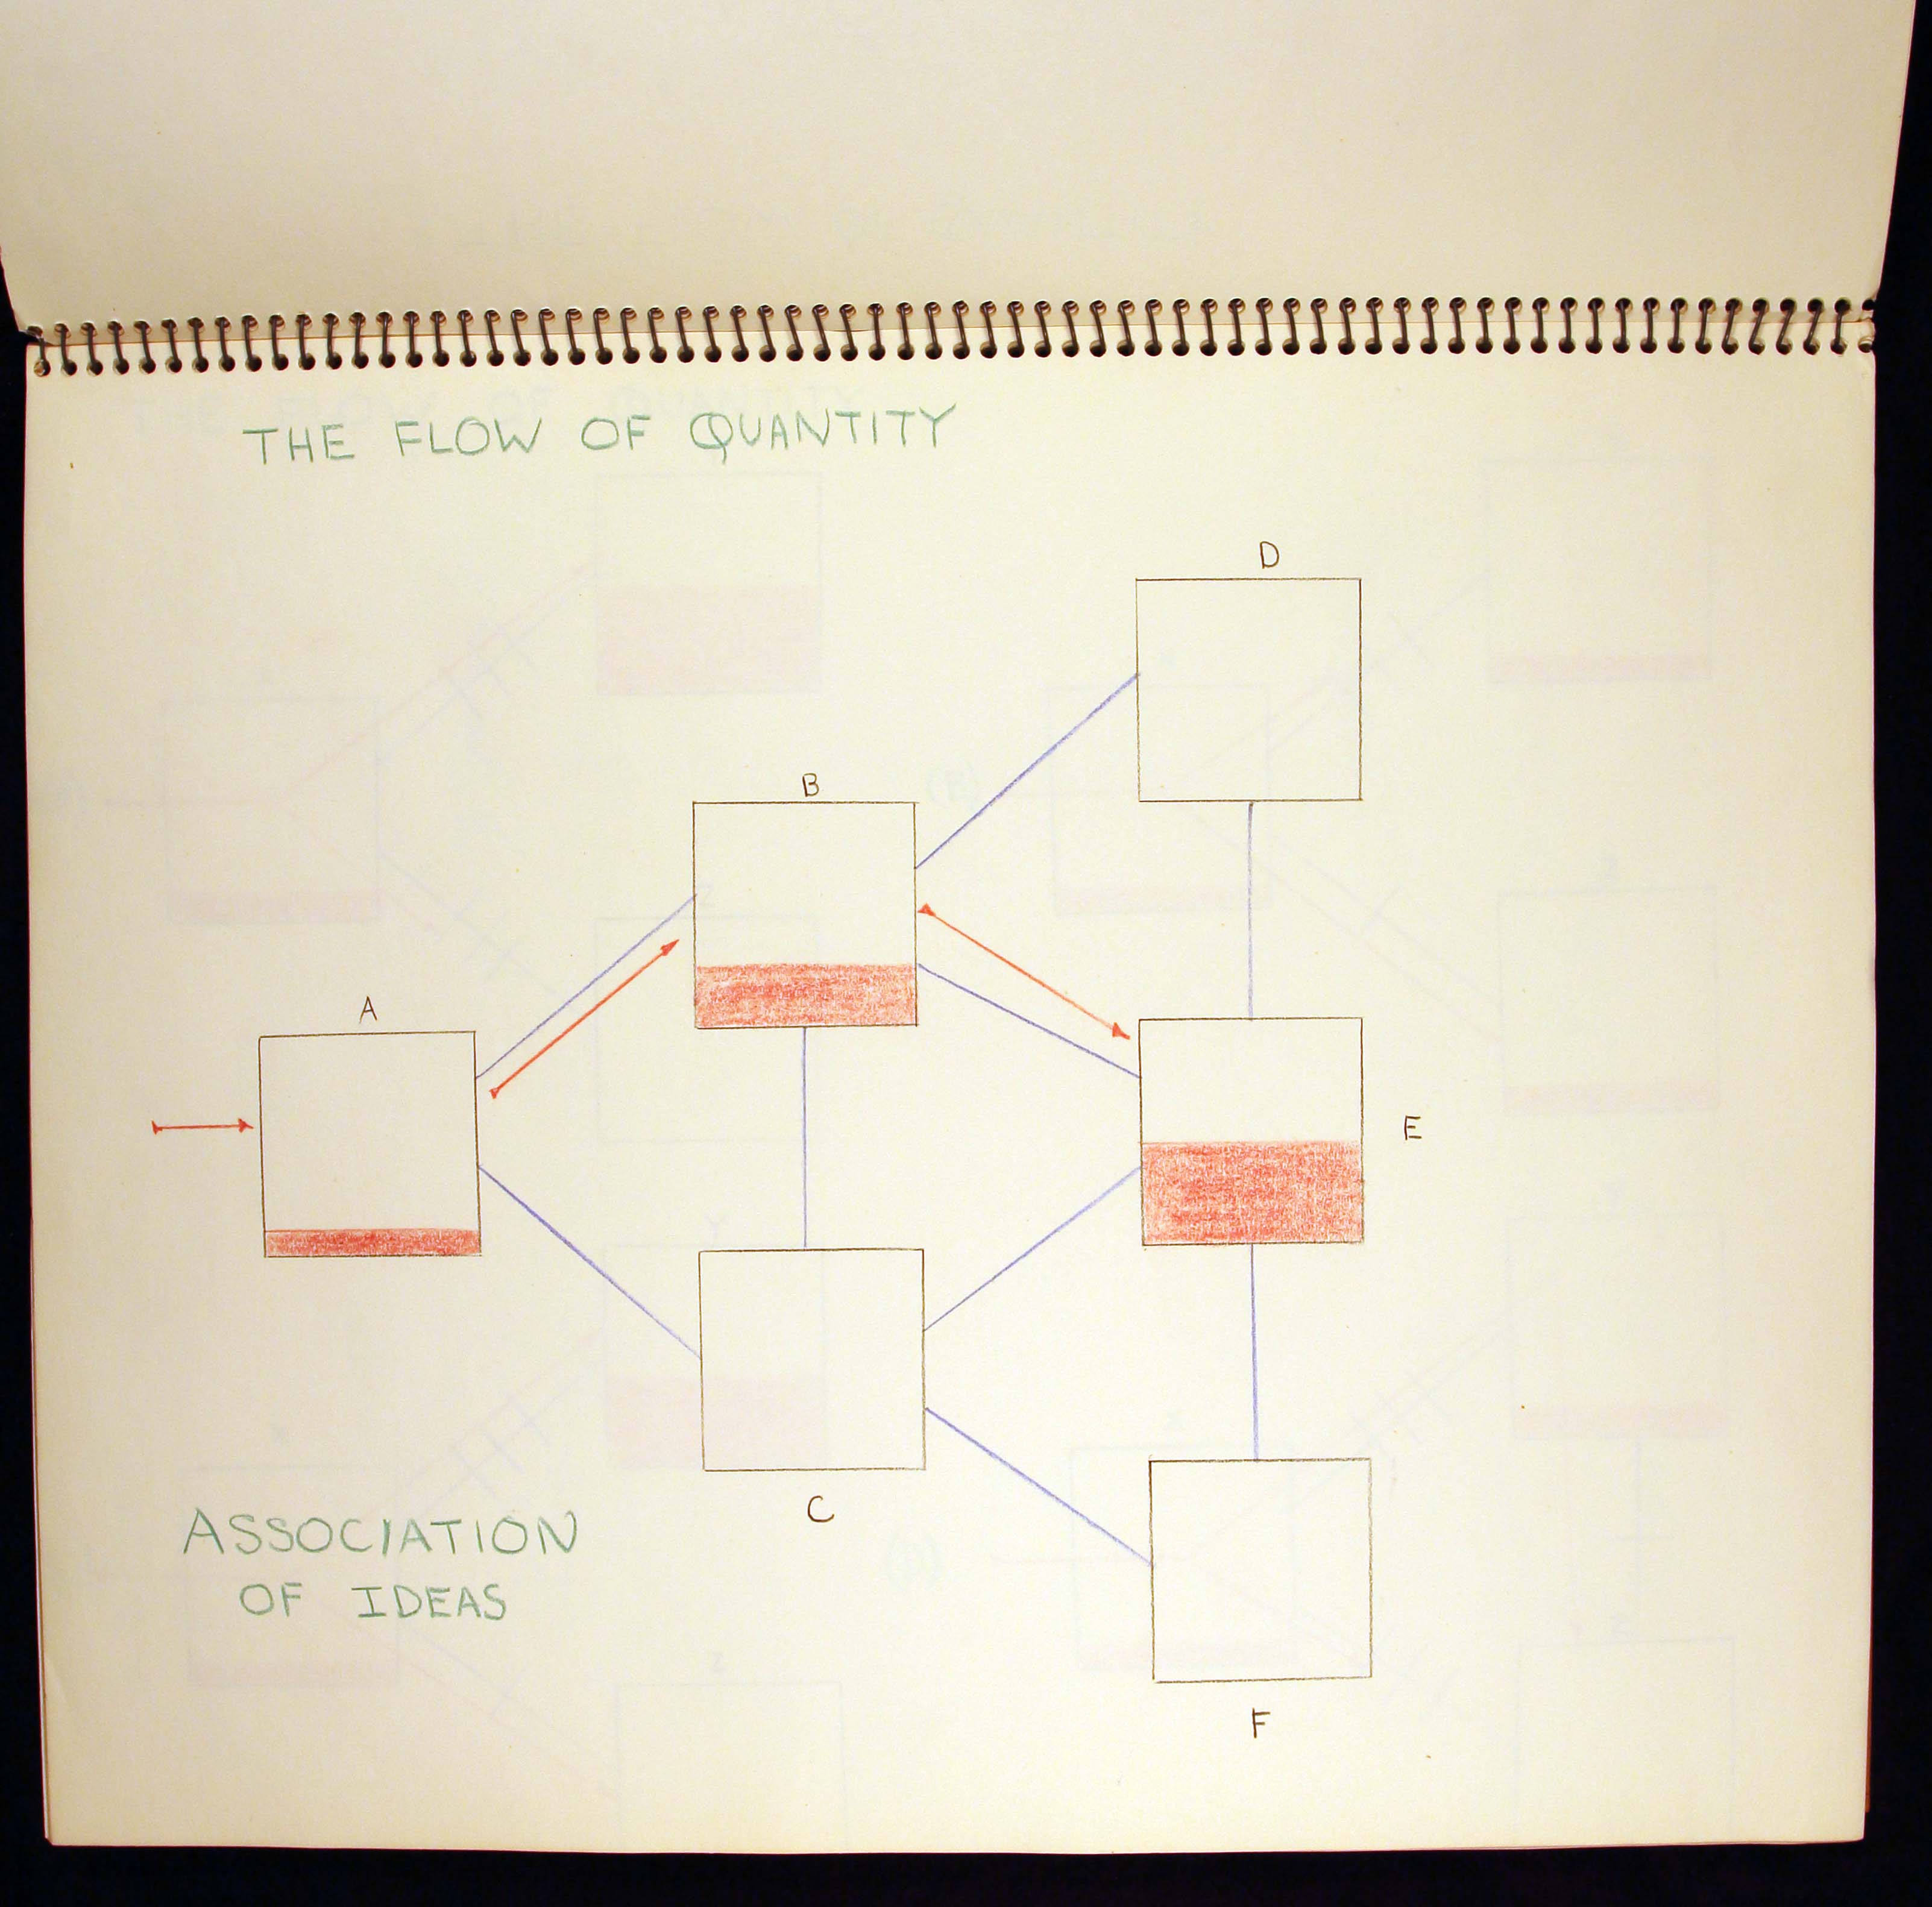 THE FLOW OF QUANTITY
D
B
A
E
C
ASSOCIATION
OF IDEAS
F